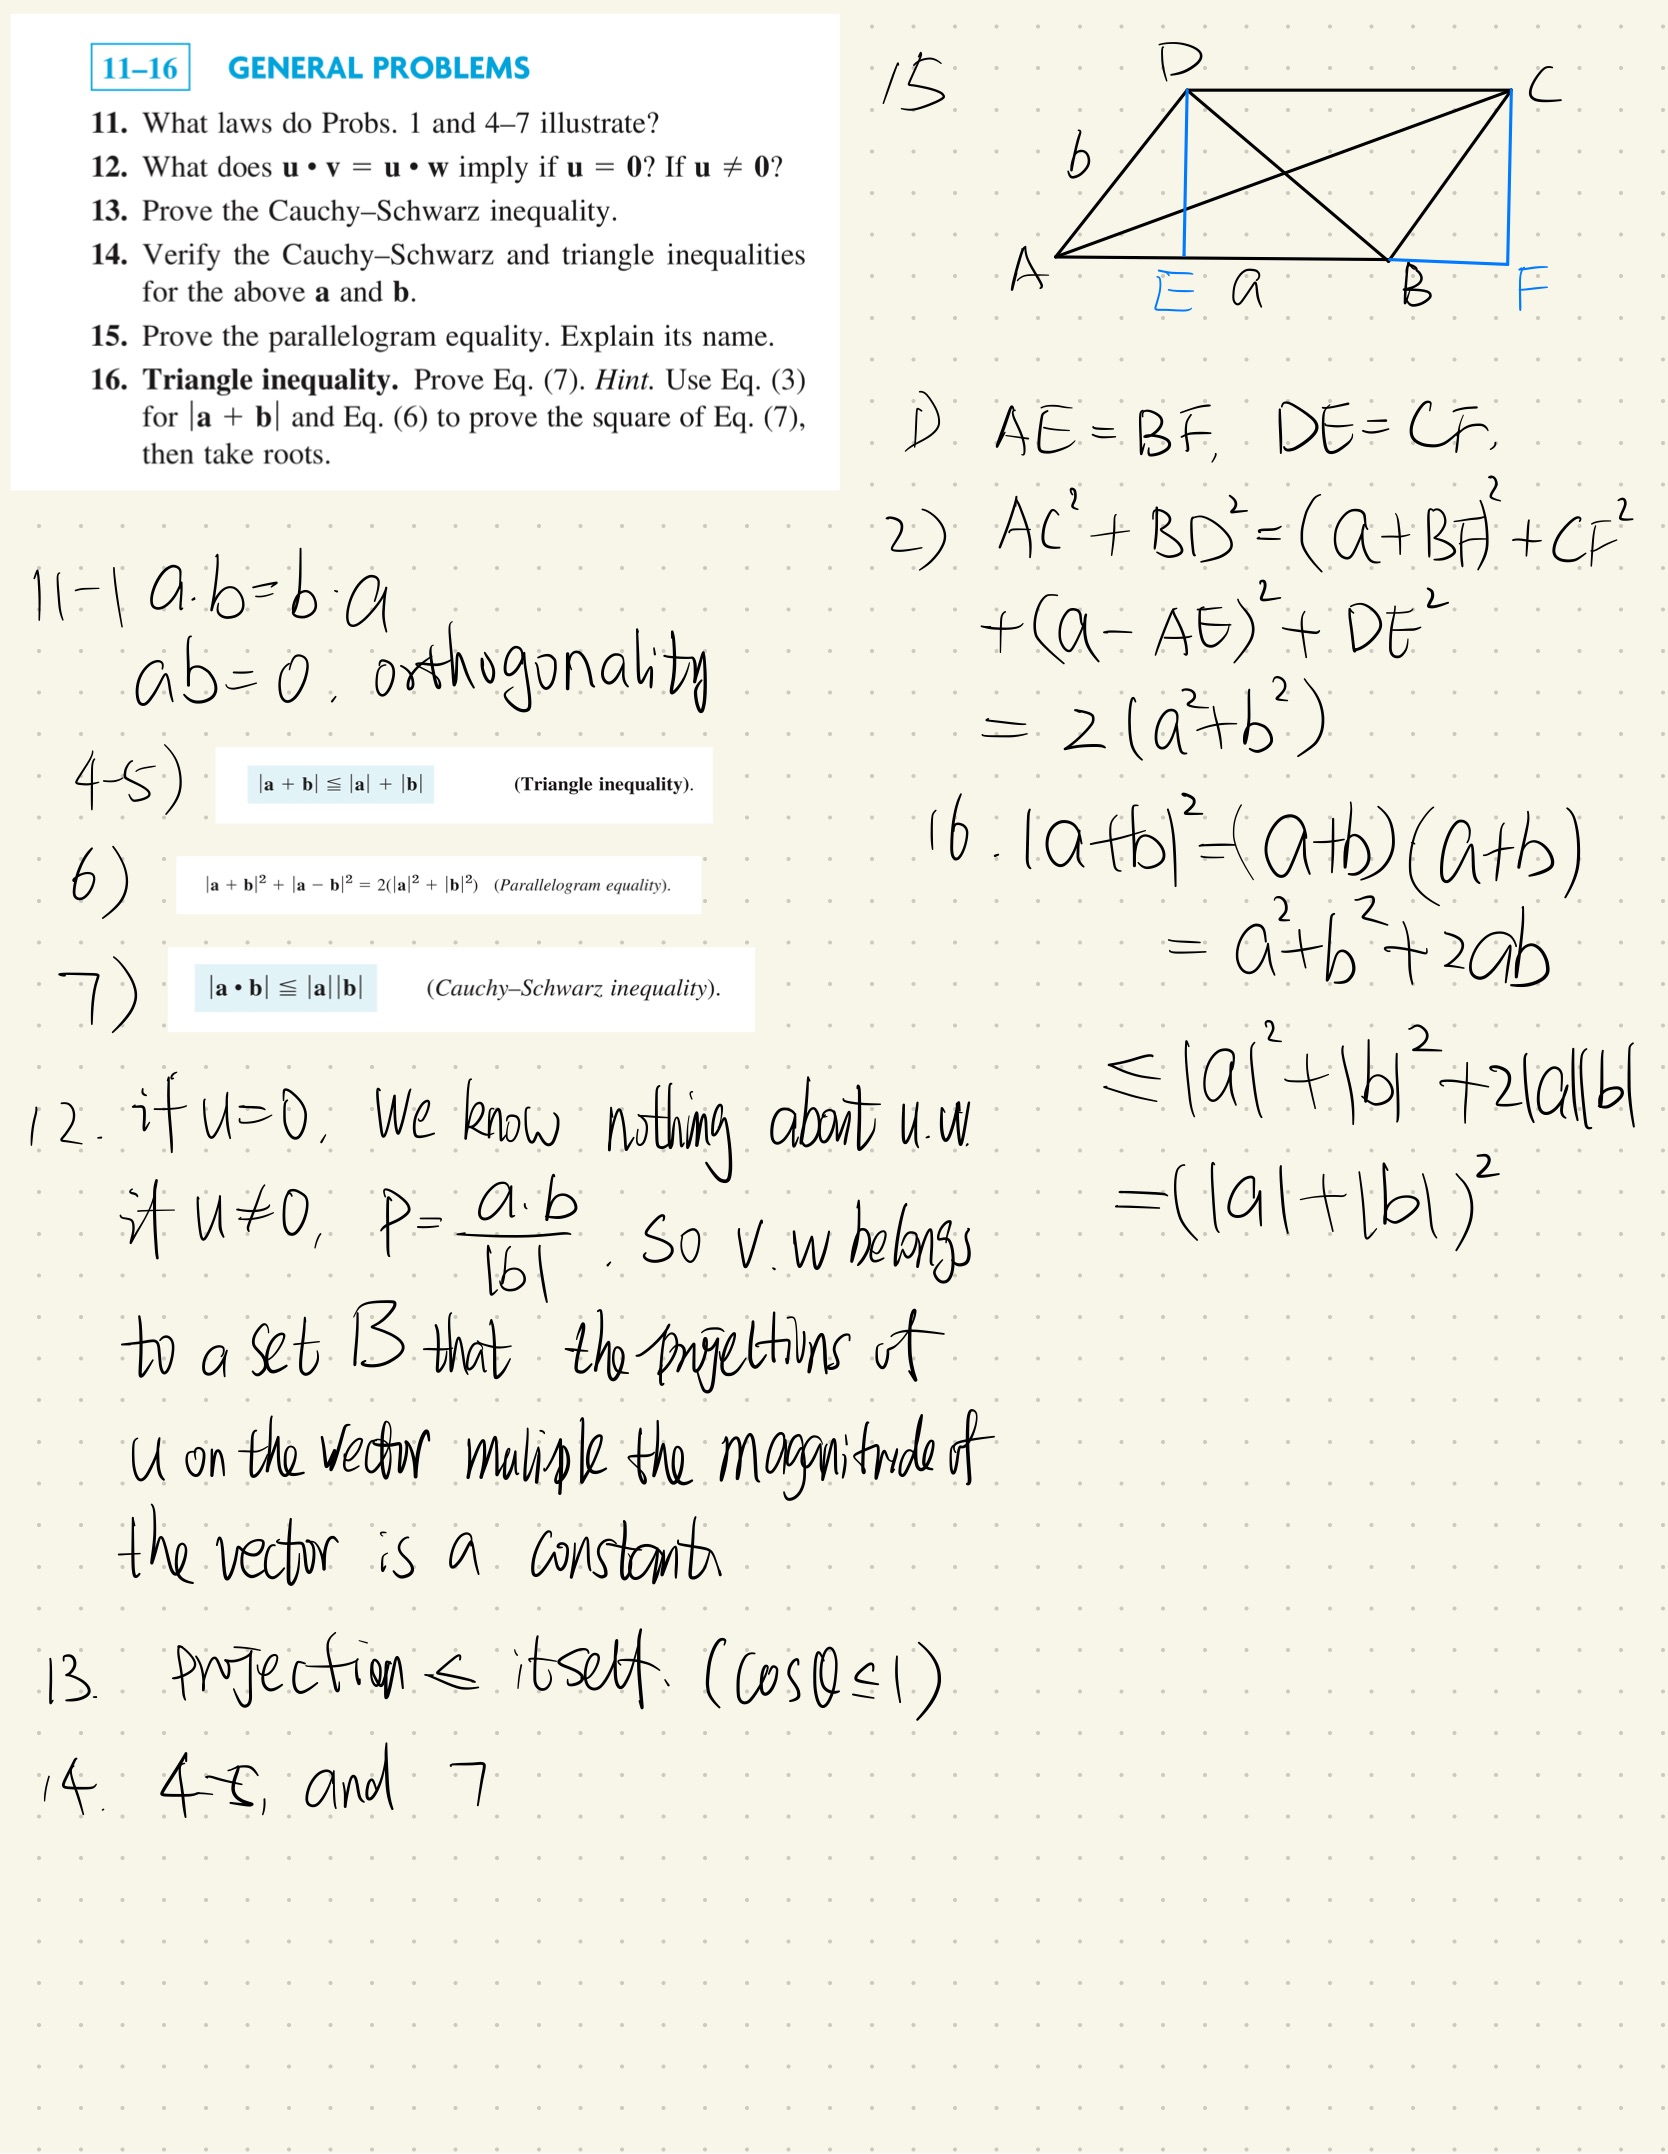 11–16 GENERAL PROBLEMS
11. What laws do Probs. 1 and 4–7 illustrate?
12. What does u • v = u • w imply if u = 0? If u ≠ 0?
13. Prove the Cauchy–Schwarz inequality.
14. Verify the Cauchy–Schwarz and triangle inequalities
for the above a and b.
15. Prove the parallelogram equality. Explain its name.
16. Triangle inequality. Prove Eq. (7). Hint. Use Eq. (3)
for |a + b| and Eq. (6) to prove the square of Eq. (7),
then take roots.
11-1 a·b=b·a
ab=0, orthogonality
4-5) |a + b| ≦ |a| + |b| (Triangle inequality).
6) |a + b|² + |a − b|² = 2(|a|² + |b|²) (Parallelogram equality).
7) |a • b| ≦ |a||b| (Cauchy–Schwarz inequality).
12. if u=0, We know nothing about u.w.
if u≠0, P= a·b / |b| . So v.w belongs
to a set B that the projections of
u on the vector muliple the magnitude of
the vector is a constant
13. Projection ≤ itself. (cosθ≤1)
14. 4-5, and 7
15
D
C
b
A
E
a
B
F
1) AE=BF, DE=CF,
2) AC²+BD²=(a+BF)²+CF²
+(a-AE)²+DE²
=2(a²+b²)
16. |a+b|²=(a+b)(a+b)
=a²+b²+2ab
≤|a|²+|b|²+2|a||b|
=(|a|+|b|)²